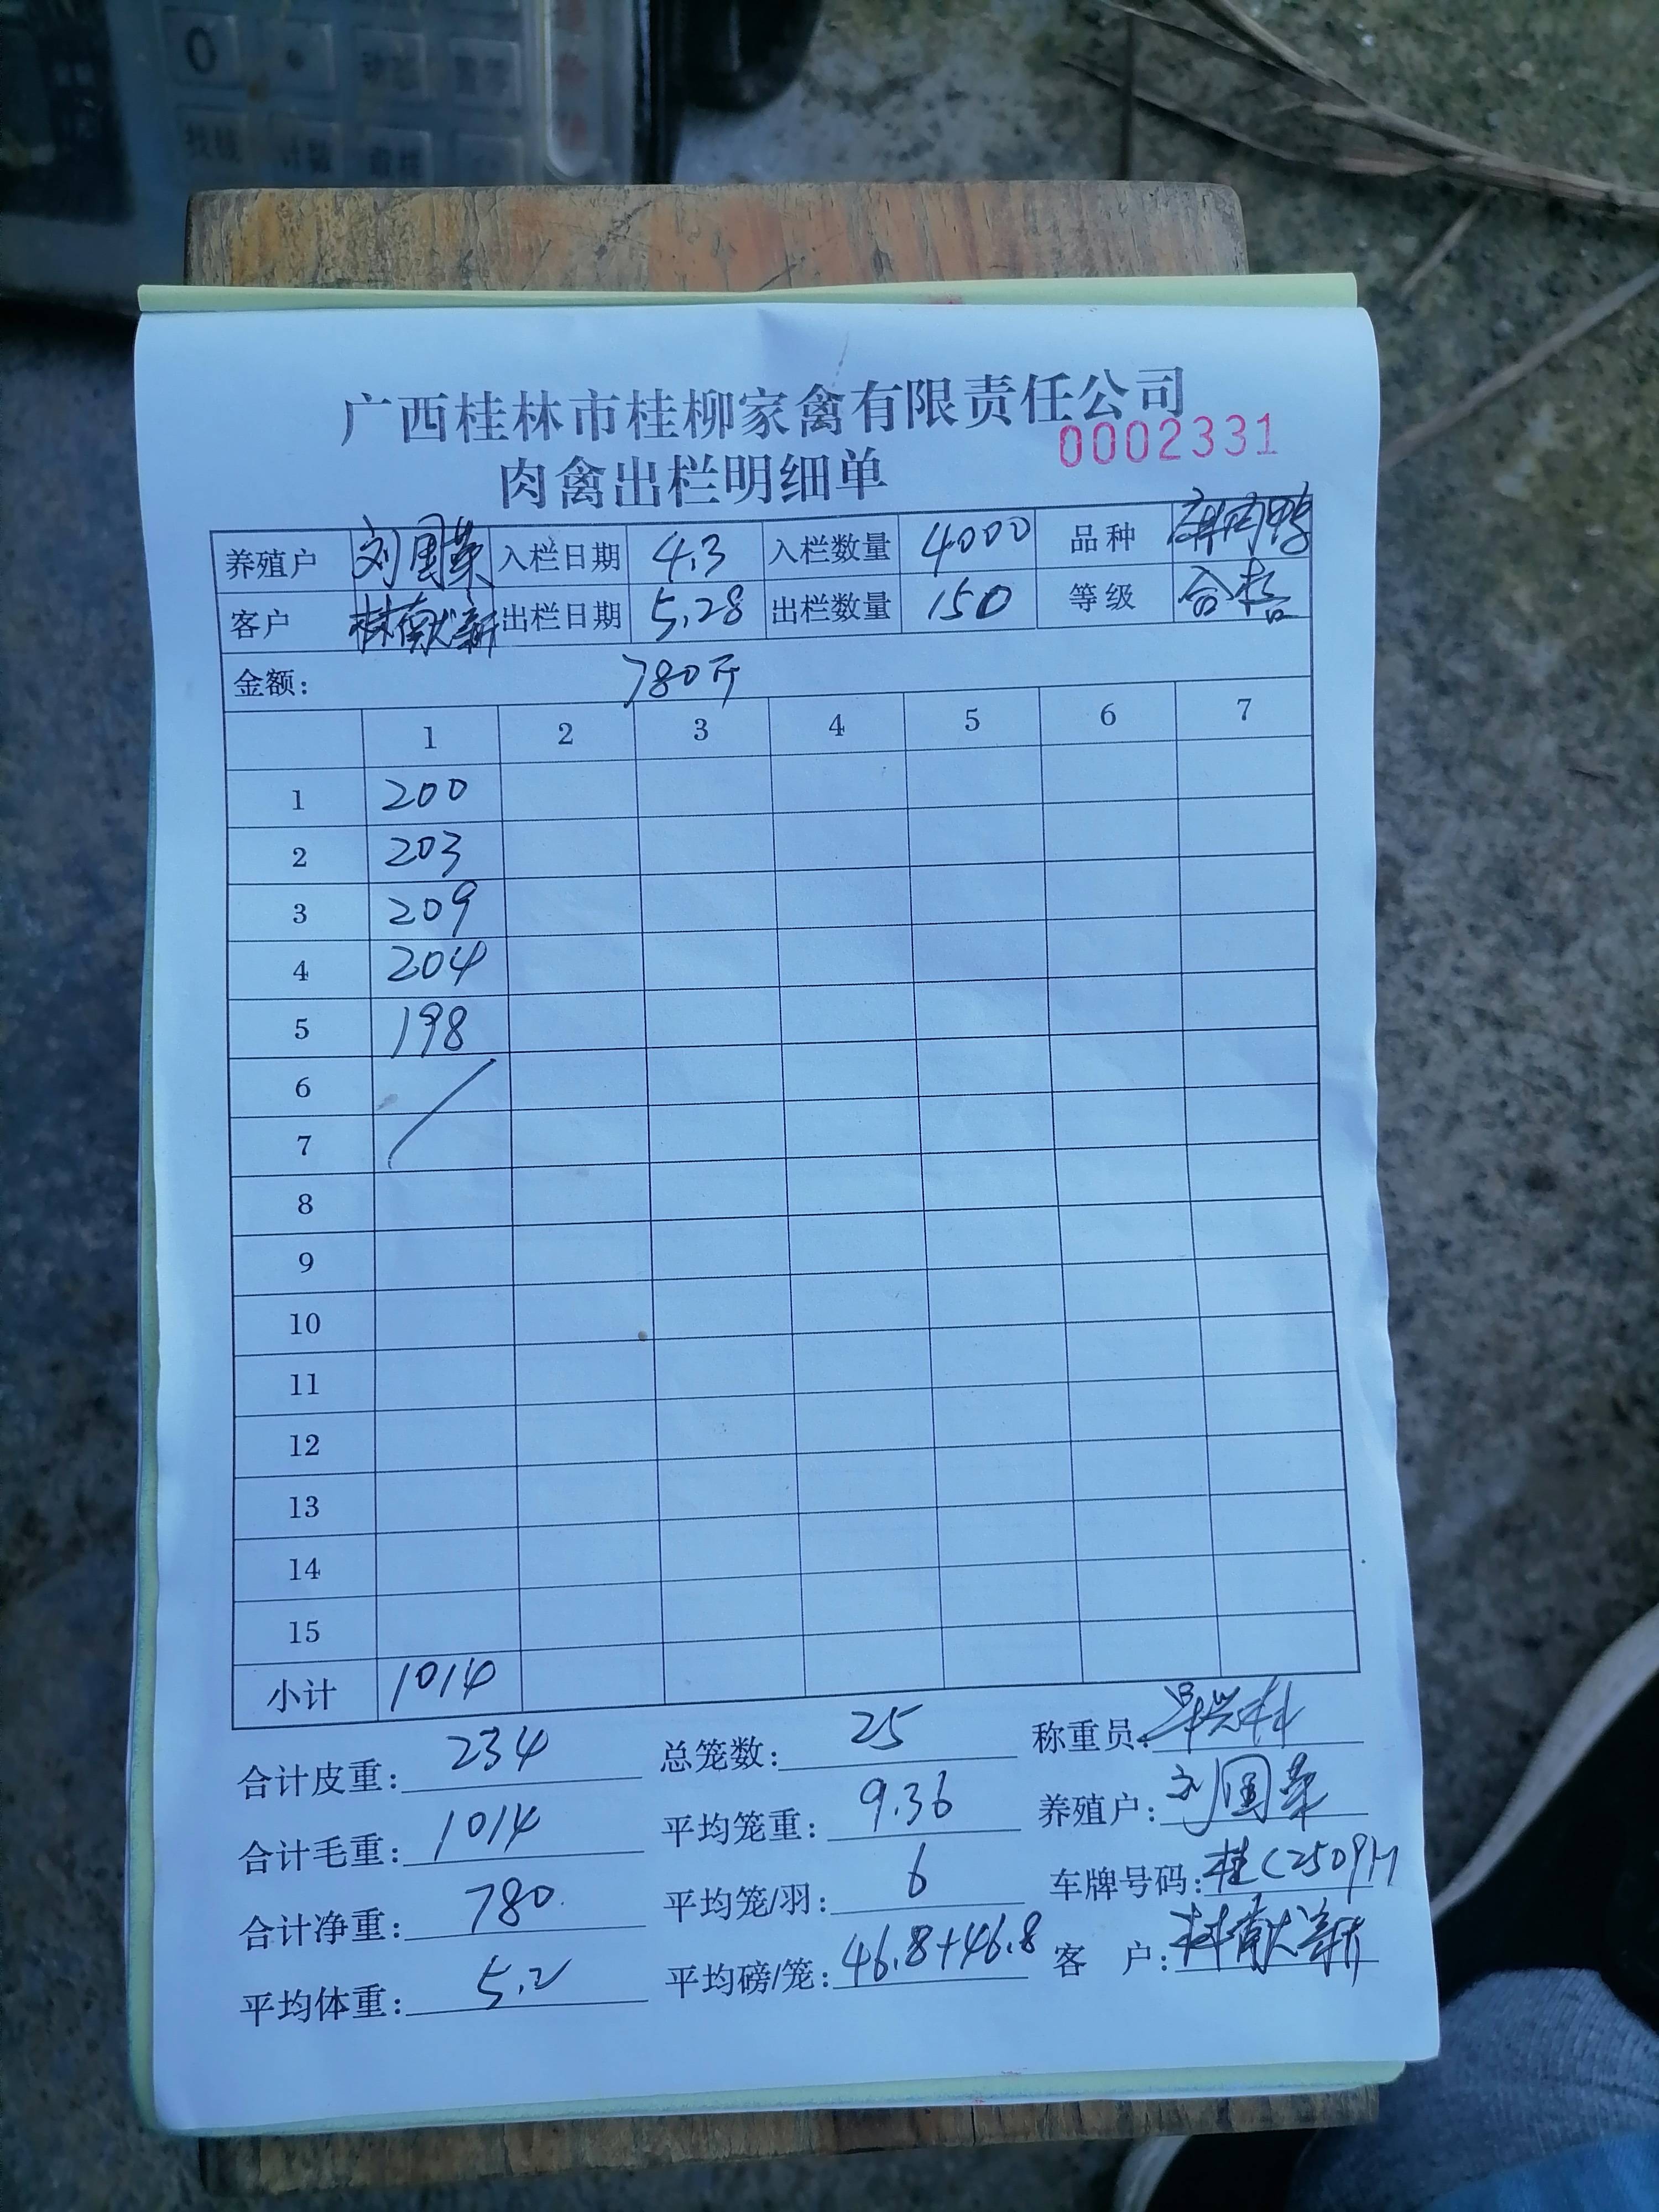 0 .
广西桂林市桂柳家禽有限责任公司
0002331
肉禽出栏明细单
养殖户 刘国荣 入栏日期 4.3 入栏数量 4000 品种
客户 林献新 出栏日期 5.28 出栏数量 150 等级 合格
金额: 780斤
1 2 3 4 5 6 7
1 200
2 203
3 209
4 204
5 198
6
7
8
9
10
11
12
13
14
15
小计 1014
合计皮重: 234 总笼数: 25 称重员:
合计毛重: 1014 平均笼重: 9.36 养殖户: 刘国荣
合计净重: 780 平均笼/羽: 6 车牌号码: 桂C2509H
平均体重: 5.2 平均磅/笼: 46.8+46.8 客 户: 林献新